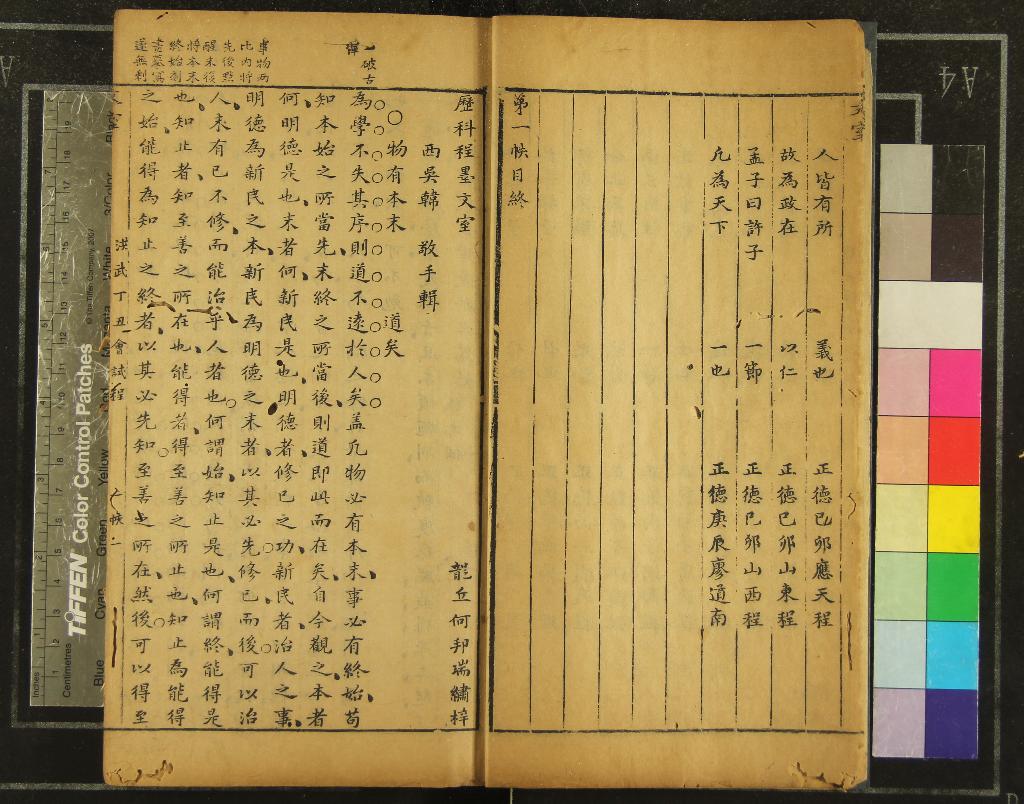 人皆有所 義也 正德己卯應天程
故為政在 以仁 正德己卯山東程
孟子曰許子 一節 正德己卯山西程
凢為天下 一也 正德庚辰廖道南
第一帙目終
歷科程墨文室
西吳韓 敬手輯 龍丘何邦瑞繡梓
物有本末 道矣
為學不失其序則道不遠於人矣盖凢物必有本末事必有終始苟
知本始之所當先末終之所當後則道即此而在矣自今觀之本者
何明德是也末者何新民是也明德者修己之功新民者治人之事
明德為新民之本新民為明德之末者以其必先修己而後可以治
人未有己不修而能治乎人者也何謂始知止是也何謂終能得是
也知止者知至善之所在也能得者得至善之所止也知止為能得
之始能得為知止之終者以其必先知至善之所在然後可以得至
一破古
事物兩
比內將
先後㸃
醒末後
將本末
終始制
洪武丁丑會試程
帙一
TIFFEN Color Control Patches
© The Tiffen Company, 2007
Inches
Centimetres
Blue
Cyan
Green
Yellow
Red
Magenta
White
3/Color
Black
A4